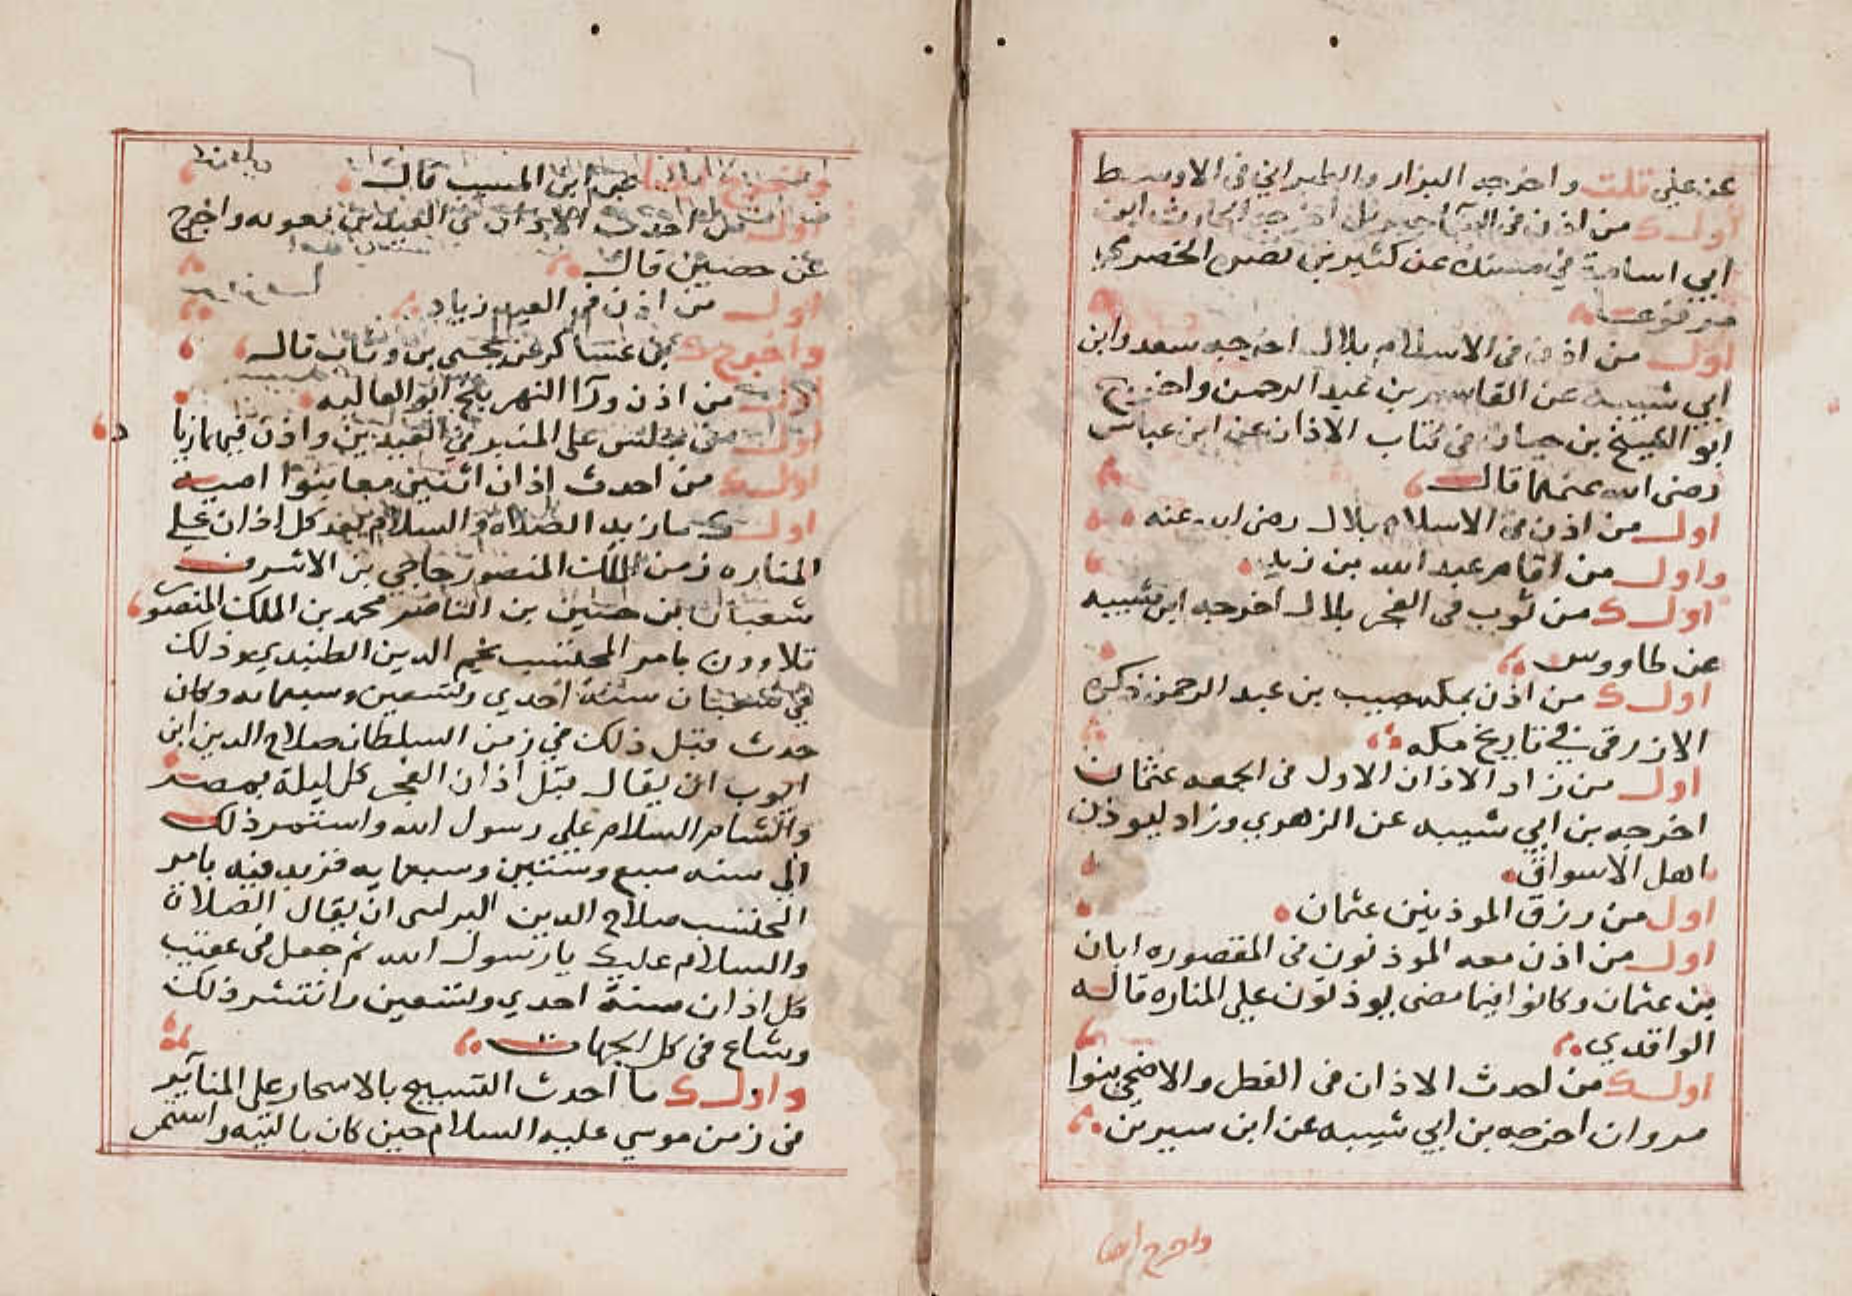 عن علي قلت واخرجه البزار والطبراني في الاوسط
اول من اذن في السما جبريل اخرجه الحارث ابن
ابي اسامة في مسنده عن كثير بن الحضرمي
مرفوعا
اول من اذن في الاسلام بلال اخرجه سعد وابن
ابي شيبه عن القاسم بن عبد الرحمن واخرج
ابو الشيخ بن حيان في كتاب الاذان عن ابن عباس
رضي الله عنهما قال
اول من اذن في الاسلام بلال رضي الله عنه
واول من اقام عبد الله بن زيد
اول من ثوب في الفجر بلال اخرجه ابن شيبه
عن طاووس
اول من اذن بمكه حبيب بن عبد الرحمن ذكره
الازرقي في تاريخ مكه
اول من زاد الاذان الاول في الجمعه عثمان
اخرجه بن ابي شيبه عن الزهري وزاد ليوذن
اهل الاسواق
اول من رزق الموذنين عثمان
اول من اذن معه الموذنون في المقصوره ابان
بن عثمان وكانوا فيما مضى يوذنون علي المناره قاله
الواقدي
اول من احدث الاذان في الفطر والاضحي بنوا
مروان اخرجه بن ابي شيبه عن ابن سيرين
واخرج ايضا
واخرج ايضا عن ابن المسيب قال
اول من احدث الاذان في العيدين معويه واخرج
عن حصين قال
اول من اذن في العيد زياد
واخرج بن عساكر عن يحيى بن وثاب قال
اول من اذن ورآا النهر بلخ ابو العاليه
اول من جلس علي المنبر في العيدين واذن فيهما زياد
اول من احدث اذان اثنين معا بنوا اميه
اول ما زيد الصلاه والسلام بعد كل اذان علي
المناره زمن الملك المنصور حاجي بن الاشرف
شعبان بن حسين بن الناصر محمد بن الملك المنصور
قلاوون بامر المحتسب نجم الدين الطنبدي وذلك
في شعبان سنة احدي وتسعين وسبعمايه وكان
حدث قبل ذلك في زمن السلطان صلاح الدين ابن
ايوب ان يقال قبل اذان الفجر كل ليلة بمصر
والشام السلام علي رسول الله واستمر ذلك
الي سنه سبع وستين وسبعمايه فزيد فيه بامر
المحتسب صلاح الدين البرلسي ان يقال الصلاة
والسلام عليك يا رسول الله ثم جعل في عقيب
كل اذان سنة احدي وتسعين وانتشر ذلك
وشاع في كل الجهات
واول ما احدث التسبيح بالاسحار علي المنآير
في زمن موسي عليه السلام حين كان بالتيه واستمر